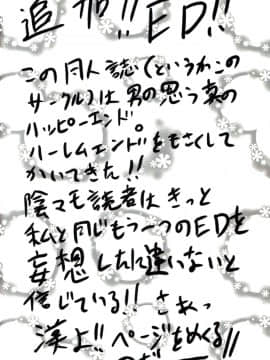 追加!!ED!!
この同人誌(というかこの
サークル)は男の思う真の
ハッピーエンド。
ハーレムエンドをもさくして
かいてきた!!
陰マモ読者はきっと
私と同じもう一つのEDを
妄想したに違いないと
信じている!! さぁっ
漢よ!! ページをめくる!!